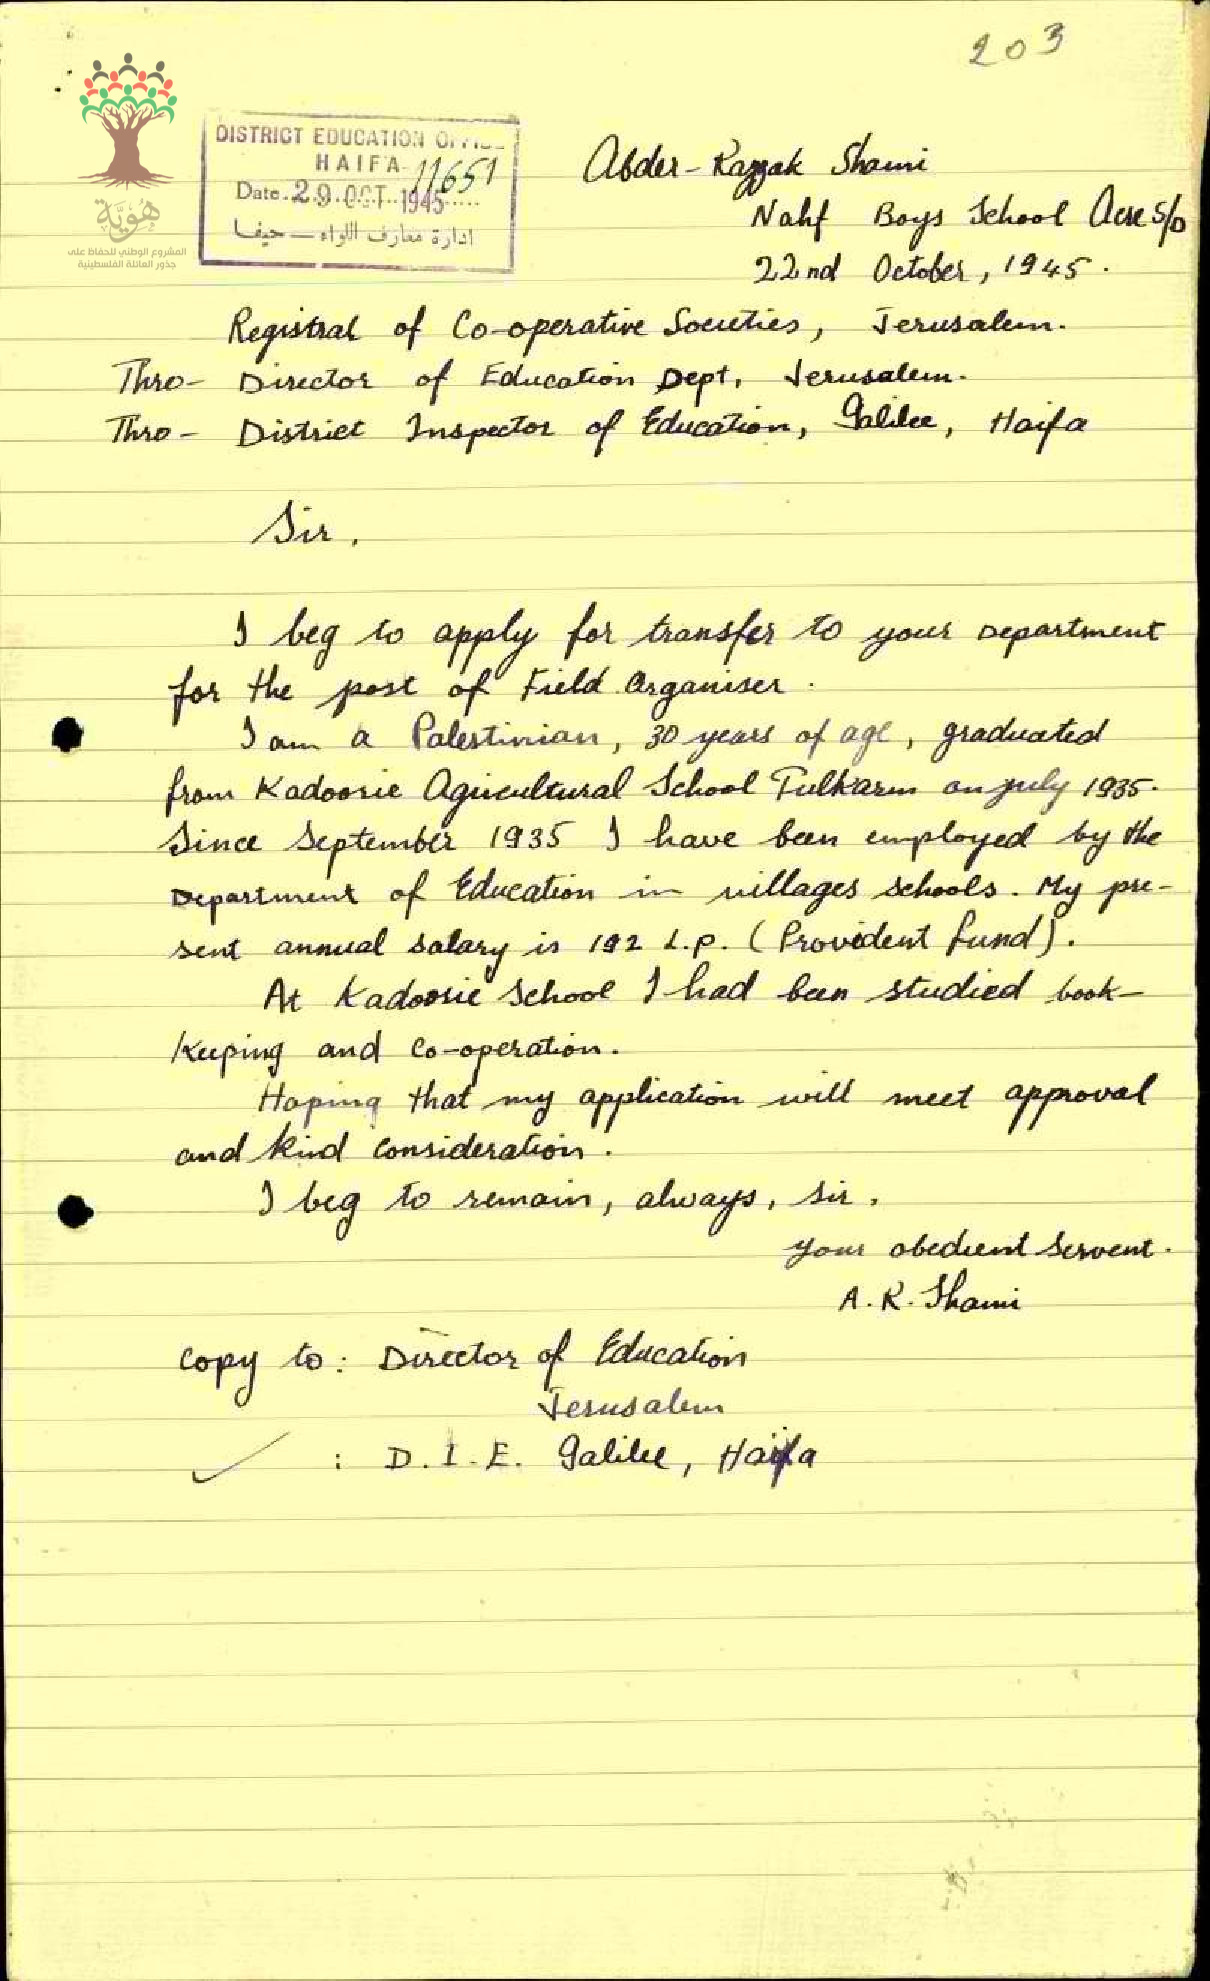 203
هُوِيَّة
المشروع الوطني للحفاظ على
جذور العائلة الفلسطينية
DISTRICT EDUCATION OFFICE
HAIFA 11651
Date. 29 OCT 1945
ادارة معارف اللواء — حيفا
Abder-Razzak Shami
Nahf Boys School Acre S/D
22nd October, 1945.
Registral of Co-operative Societies, Jerusalem.
Thro- Director of Education Dept, Jerusalem.
Thro- District Inspector of Education, Galilee, Haifa
Sir,
I beg to apply for transfer to your Department
for the post of Field Organiser.
I am a Palestinian, 30 years of age, graduated
from Kadoorie Agricultural School Tulkarm on july 1935.
Since September 1935 I have been employed by the
Department of Education in villages schools. My pre-
sent annual salary is 192 L.P. (Provident fund).
At Kadoorie School I had been studied book-
keeping and co-operation.
Hoping that my application will meet approval
and kind consideration.
I beg to remain, always, sir,
your obedient servent.
A.R. Shami
Copy to: Director of Education
Jerusalem
: D.I.E. Galilee, Haifa